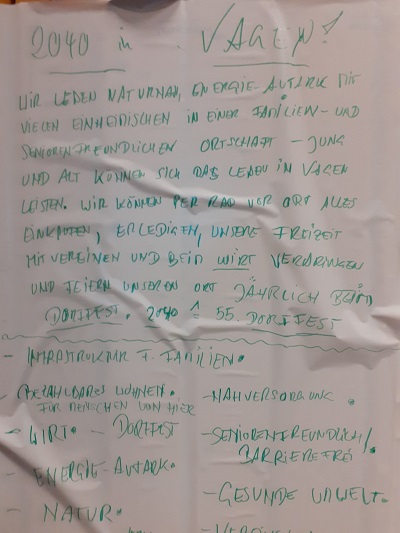 2040 in VAGEN!
WIR LEBEN NATURNAH, ENERGIE-AUTARK MIT
VIELEN EINHEIMISCHEN IN EINER FAMILIEN- UND
SENIORENFREUNDLICHEN ORTSCHAFT - JUNG
UND ALT KÖNNEN SICH DAS LEBEN IN VAGEN
LEISTEN. WIR KÖNNEN PER RAD VOR ORT ALLES
EINKAUFEN, ERLEDIGEN, UNSERE FREIZEIT
MIT VEREINEN UND BEIM WIRT VERBRINGEN
UND FEIERN UNSEREN ORT JÄHRLICH BEIM
DORFFEST. 2040 ≙ 55. DORFFEST
- INFRASTRUKTUR F. FAMILIEN.
- BEZAHLBARES WOHNEN.
FÜR MENSCHEN VON HIER
- WIRT. - DORFFEST
- ENERGIE-AUTARK.
- NATUR.
- NAHVERSORGUNG.
- SENIORENFREUNDLICH/
BARRIEREFREI
- GESUNDE UMWELT.